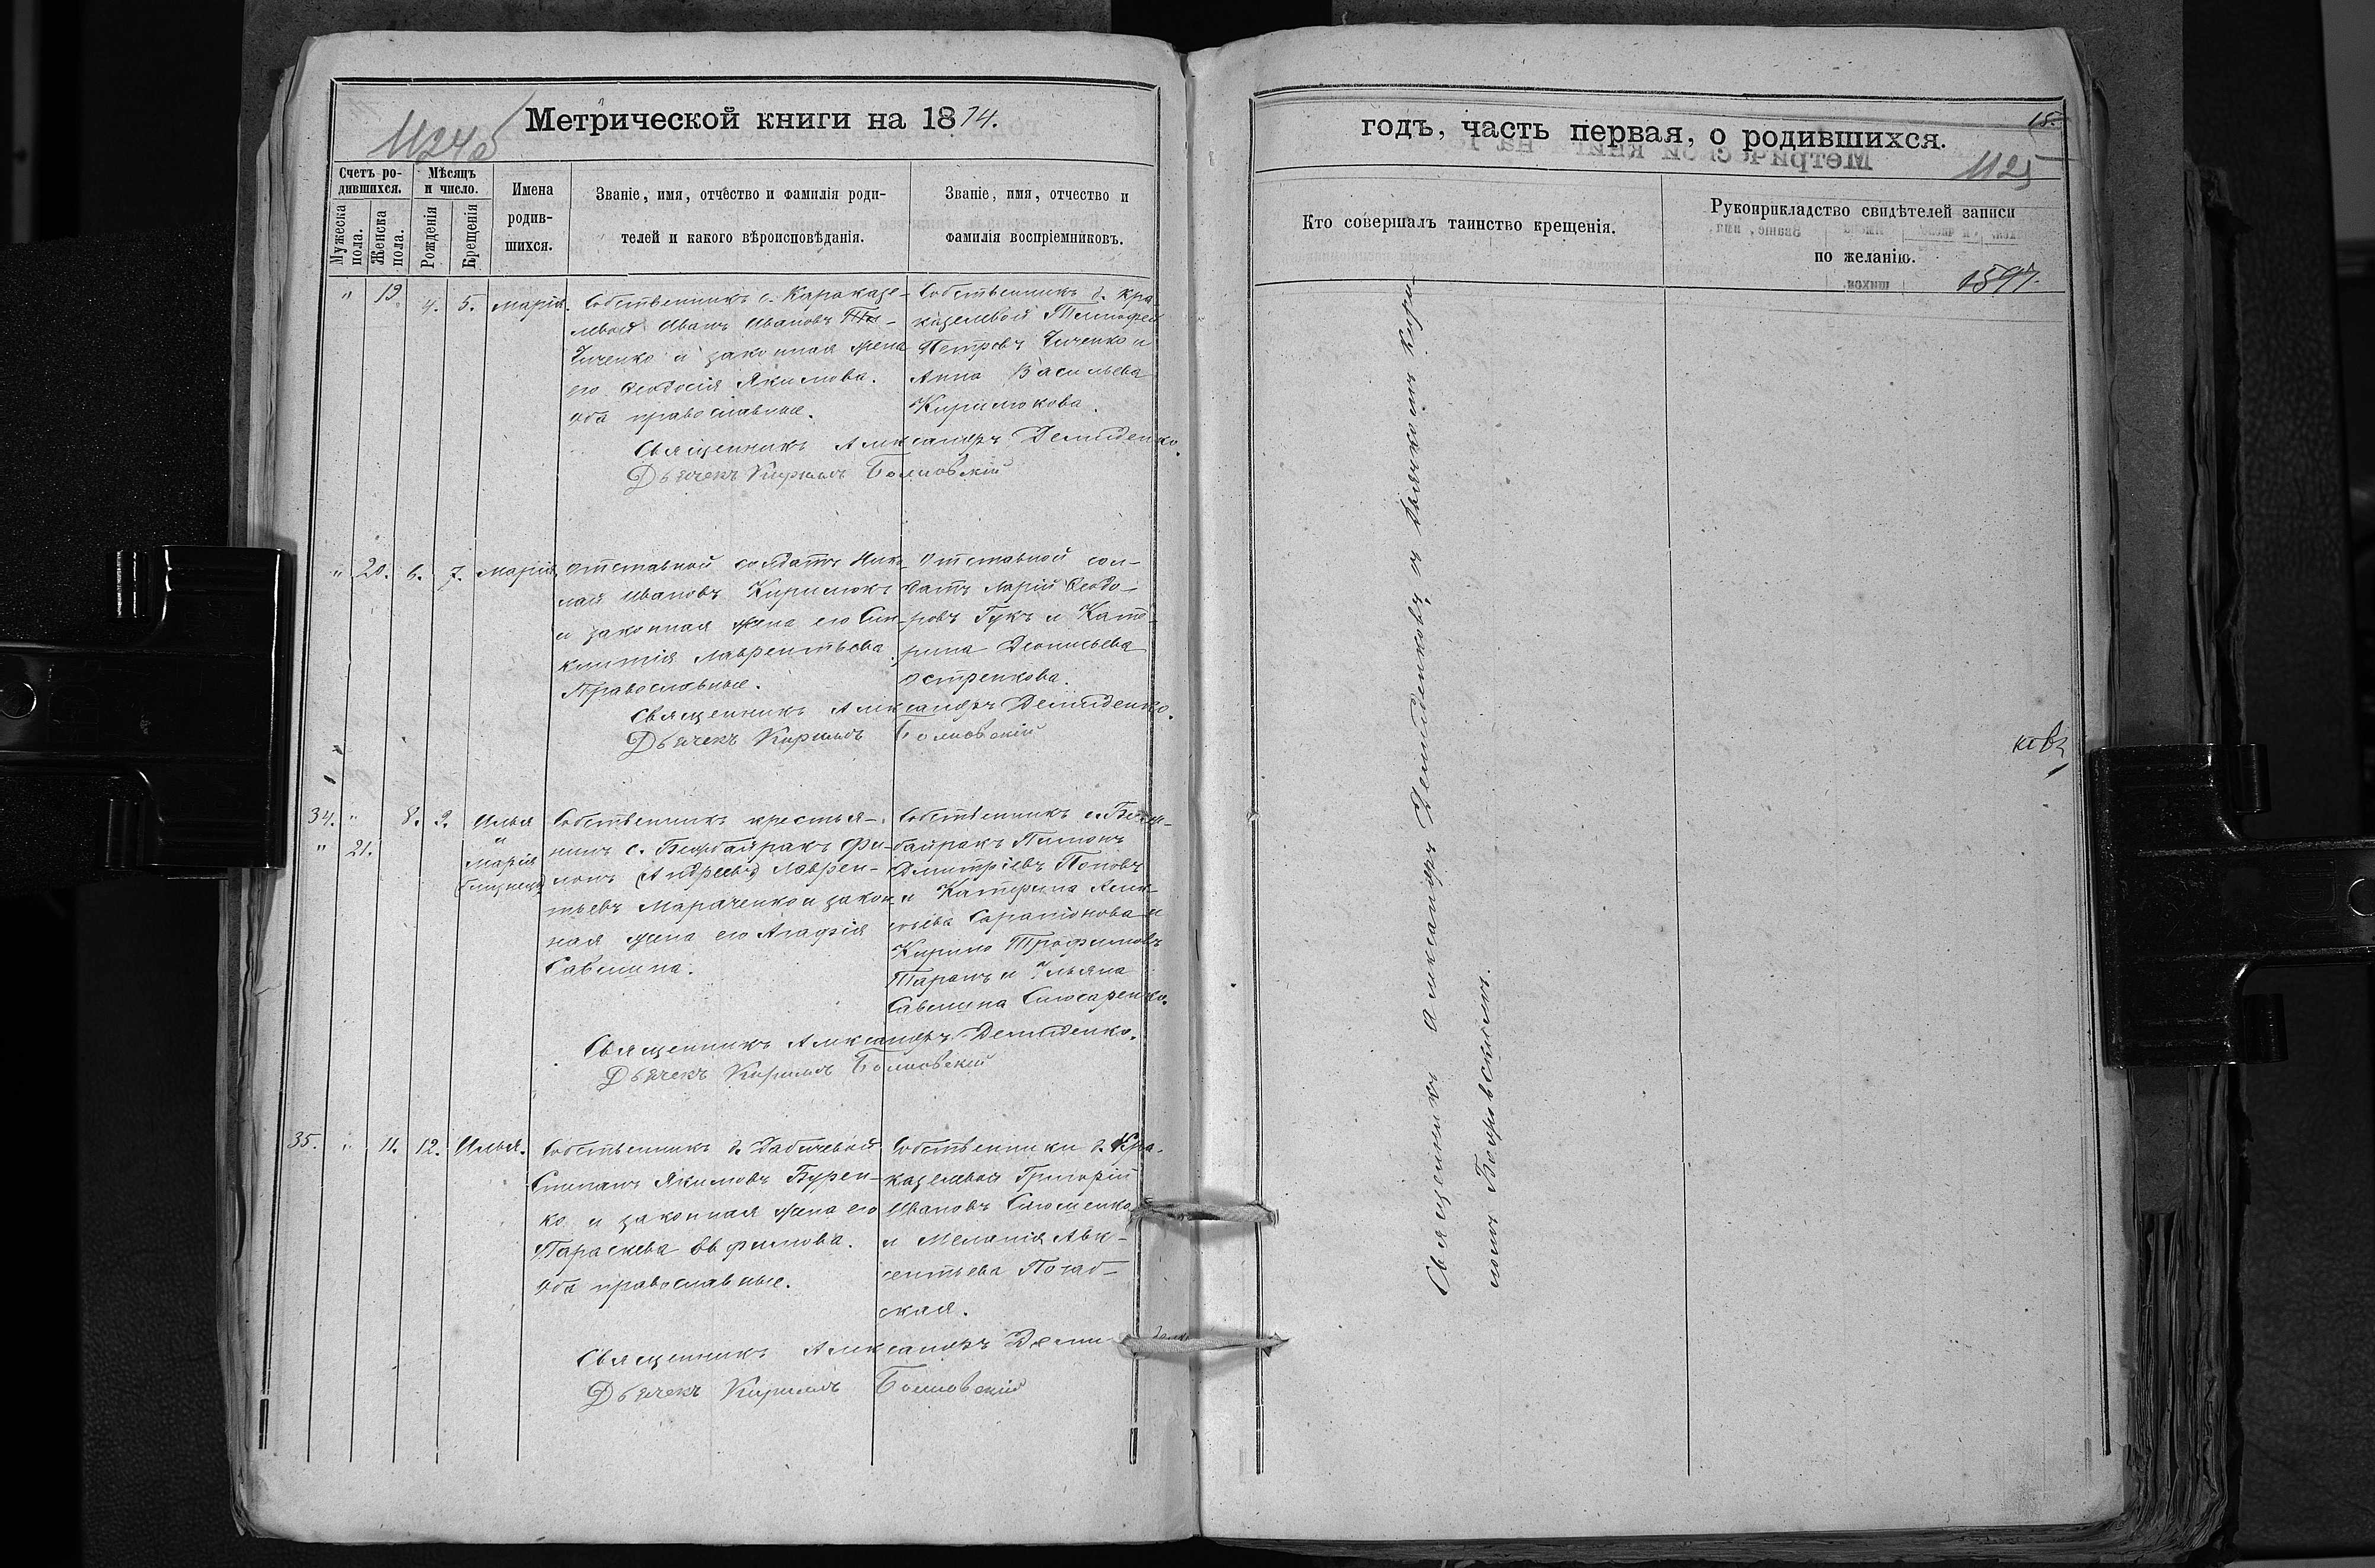 Метрической книги на 1874.
1124 об
Счетъ ро-
дившихся.
Мѣсяцъ
и число.
Мужеска
пола.
Женска
пола.
Рожденія
Крещенія
Имена
родив-
шихся.
Званіе, имя, отчество и фамилія роди-
телей и какого вѣроисповѣданія.
Званіе, имя, отчество и
фамилія воспріемниковъ.
" 19. 4. 5. Марія.
Собственникъ с. Караказе-
левой Иванъ Ивановъ
Зиченко и законная жена
его Ѳеодосія Якимова.
Оба православные.
Собственникъ д. Кра
казелевой Тимофей
Петровъ Зиченко и
Анна Васильева
Кирилюкова.
Священникъ Александръ Демиденко.
Дьячекъ Кириллъ
" 20. 6. 7. Марія
Отставной солдатъ Нико
лай Ивановъ Кирилюкъ
и законная жена его Син-
клитія Лаврентьева.
Православные.
Отставной сол-
датъ Ларій Ѳеодо-
ровъ Гукъ и Кате-
рина Діонисьева
Острекова.
Священникъ Александръ Демиденко.
Дьячекъ Кириллъ
34. " 8. 9. Илья
" 21. и
Марія
(близнецы)
Собственникъ крестья-
нинъ с. Бешбайракъ Фи-
монъ (Андреевъ) Лаврен-
тьевъ Мараченко и закон-
ная жена его Агафія
Савелина.
Собственникъ с. Беш-
байракъ Пименъ
Дмитріевъ Поповъ
и Катерина
Сарапіонова и
Кирило Трофимовъ
Таранъ и Ульяна
Савелина Слюсаренко.
Священникъ Александръ Демиденко.
Дьячекъ Кириллъ
35. " 11. 12. Илья.
Собственникъ д. Бабичевой
Степанъ Якимовъ Бурен-
ко и законная жена его
Параскева Евфимова.
Оба православные.
Собственники д. Кра-
казелевой Григорій
Ивановъ
и Меланія Авк-
сентьева
ская.
Священникъ Александръ Деми-денко
Дьячекъ Кириллъ
годъ, часть первая, о родившихся.
18.
1125
Кто совершалъ таинство крещенія.
Рукоприкладство свидѣтелей записи
по желанію.
Священникъ Александръ Демиденковъ съ дьячкомъ Кири-
ломъ
ковъ